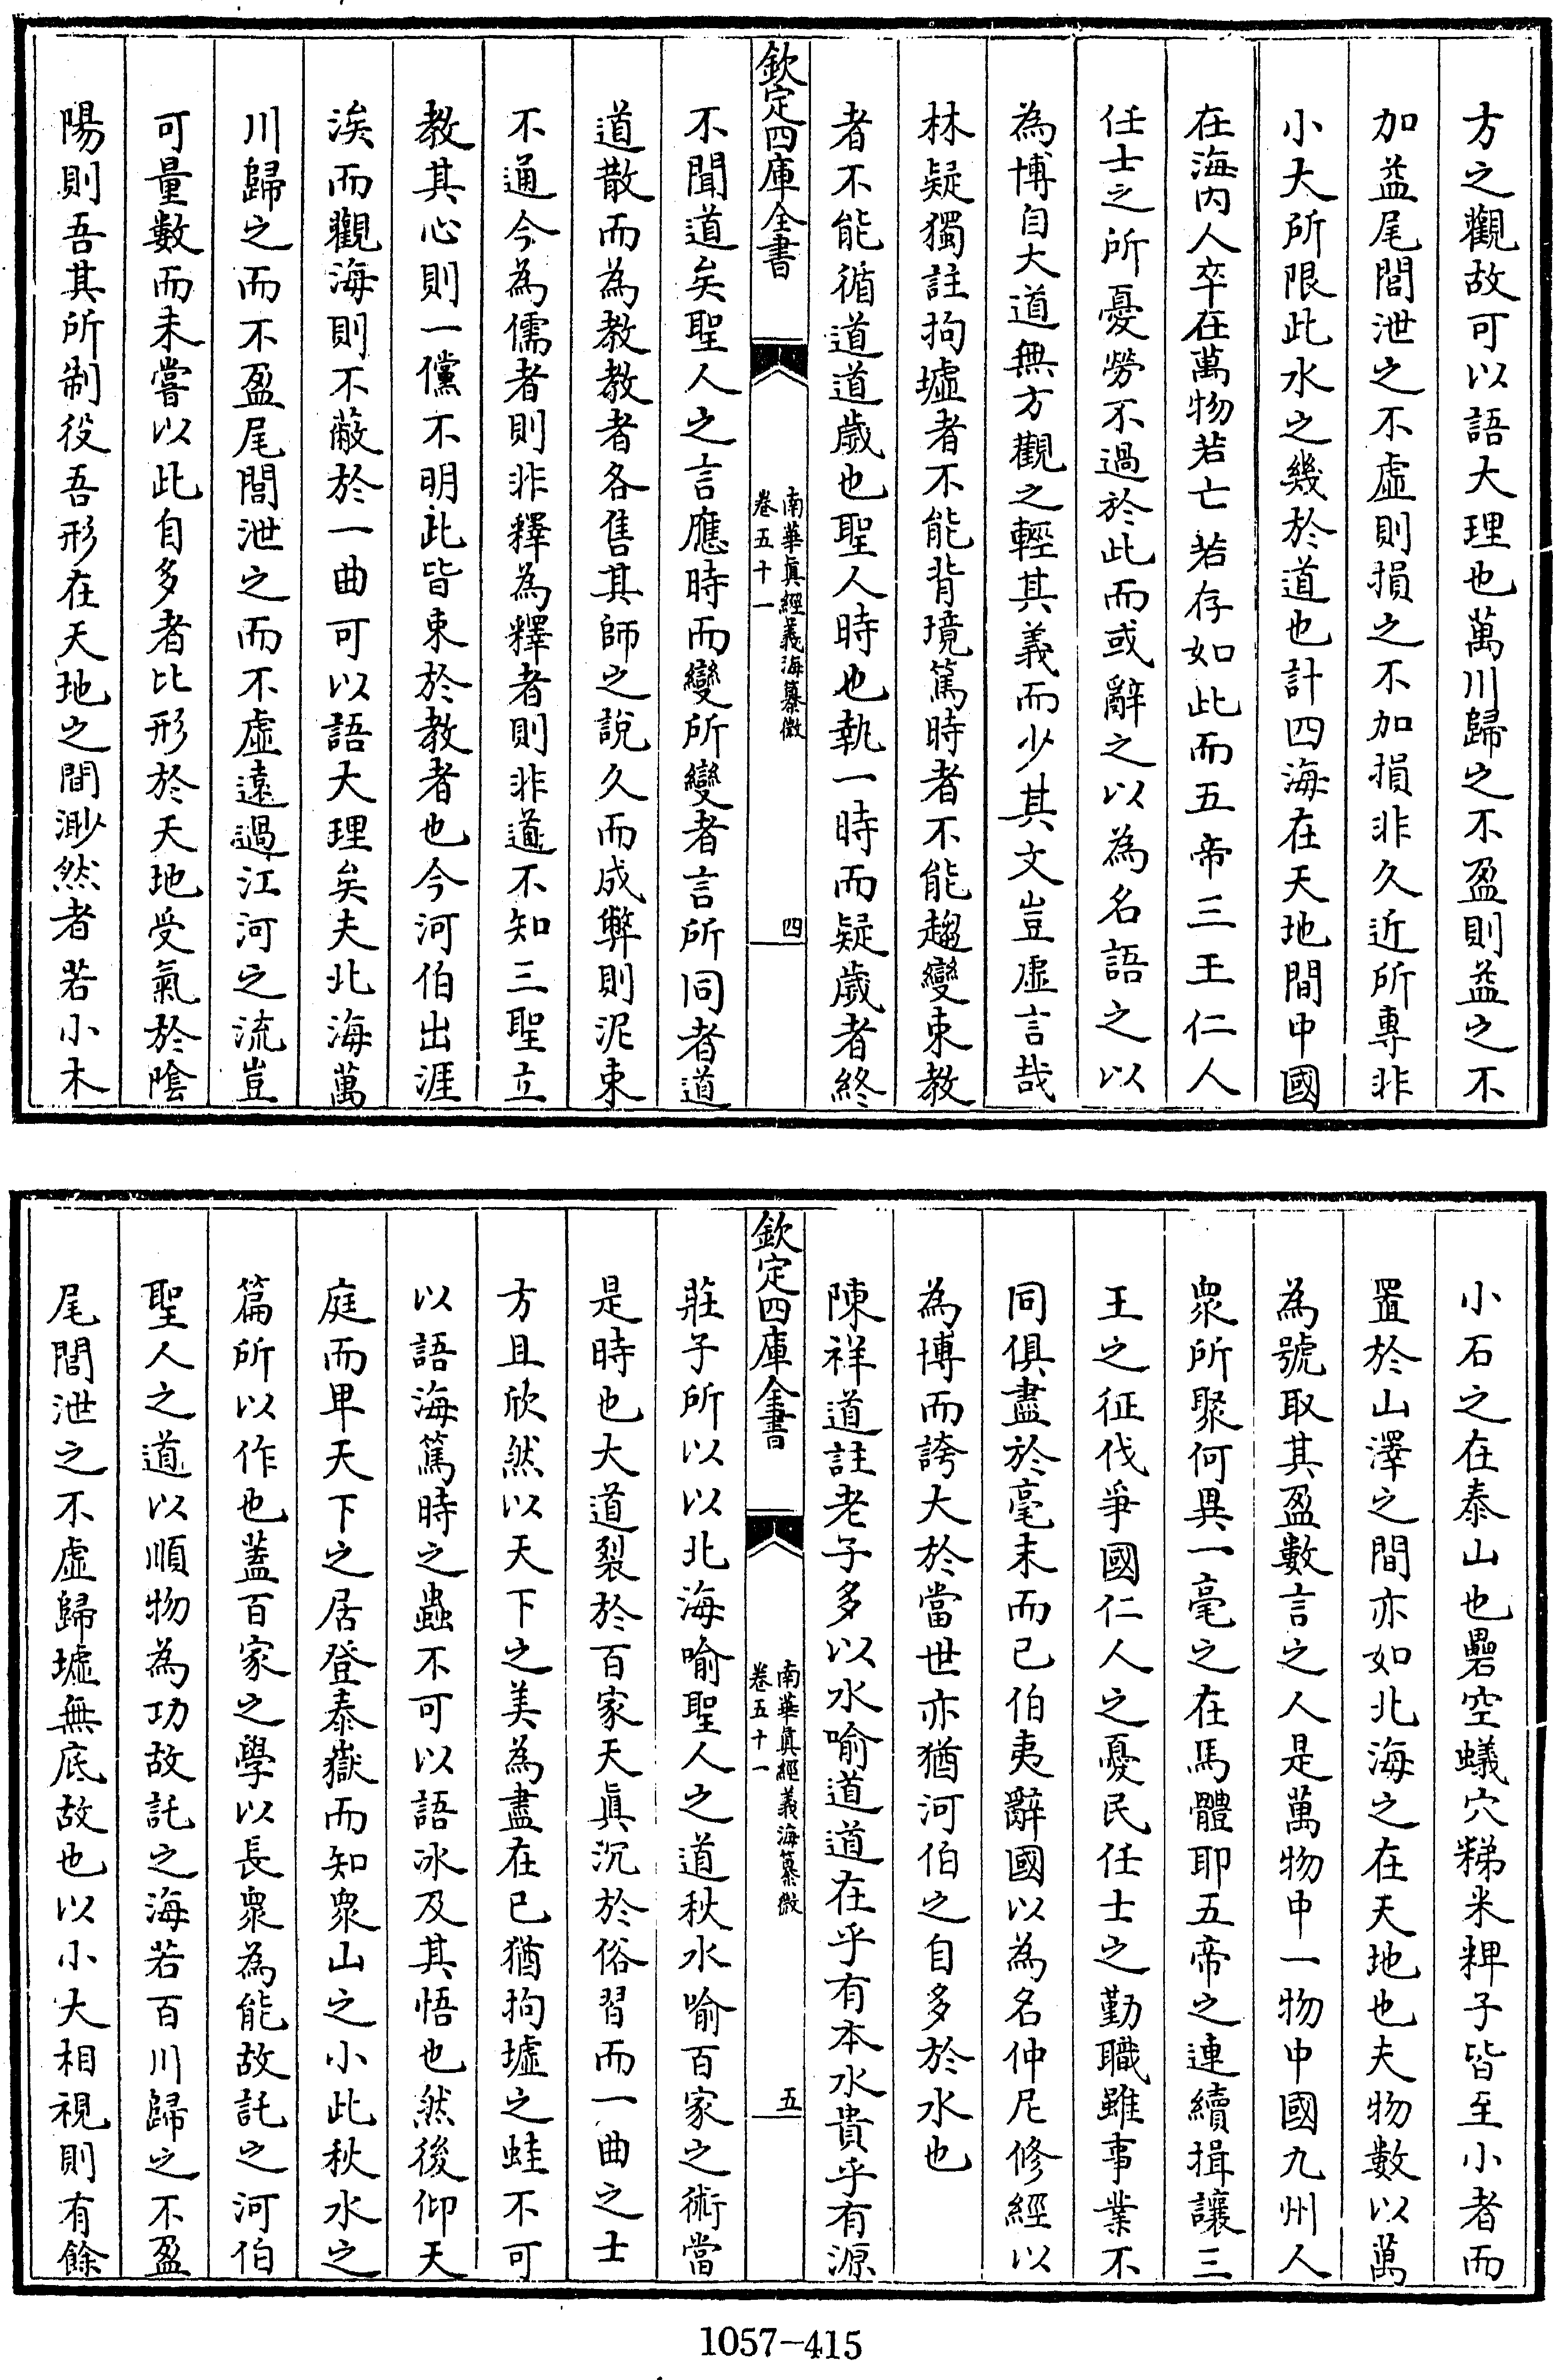 方之觀故可以語大理也萬川歸之不盈則益之不
加益尾閭泄之不虛則損之不加損非久近所專非
小大所限此水之幾於道也計四海在天地間中國
在海内人卒在萬物若亡若存如此而五帝三王仁人
任士之所憂勞不過於此而或辭之以為名語之以
為博自大道無方觀之輕其義而少其文豈虛言哉
林疑獨註拘墟者不能背境篤時者不能趨變束教
者不能循道道歲也聖人時也執一時而疑歲者終
欽定四庫全書
南華真經義海纂微
卷五十一
四
不聞道矣聖人之言應時而變所變者言所同者道
道散而為教教者各售其師之說久而成弊則泥束
不通今為儒者則非釋為釋者則非道不知三聖立
教其心則一儻不明此皆束於教者也今河伯出涯
涘而觀海則不蔽於一曲可以語大理矣夫北海萬
川歸之而不盈尾閭泄之而不虛遠過江河之流豈
可量數而未嘗以此自多者比形於天地受氣於陰
陽則吾其所制役吾形在天地之間渺然者若小木
小石之在泰山也礨空蟻穴稊米稗子皆至小者而
置於山澤之間亦如北海之在天地也夫物數以萬
為號取其盈數言之人是萬物中一物中國九州人
衆所聚何異一毫之在馬體耶五帝之連續揖讓三
王之征伐爭國仁人之憂民任士之勤職雖事業不
同俱盡於毫末而已伯夷辭國以為名仲尼修經以
為博而誇大於當世亦猶河伯之自多於水也
陳祥道註老子多以水喻道道在乎有本水貴乎有源
欽定四庫全書
南華真經義海纂微
卷五十一
五
莊子所以以北海喻聖人之道秋水喻百家之術當
是時也大道裂於百家天真沉於俗習而一曲之士
方且欣然以天下之美為盡在已猶拘墟之蛙不可
以語海篤時之蟲不可以語冰及其悟也然後仰天
庭而卑天下之居登泰嶽而知衆山之小此秋水之
篇所以作也蓋百家之學以長衆為能故託之河伯
聖人之道以順物為功故託之海若百川歸之不盈
尾閭泄之不虛歸墟無底故也以小大相視則有餘
1057-415